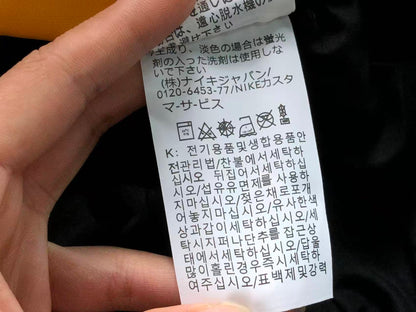 を通し
は、遠心脱水機の
避け下さい
主成り、淡色の場合は蛍光
剤の入った洗剤は使用しな
いで下さい
(株)ナイキジャパン/
0120-6453-77/NIKEカスタ
マーサービス
K: 전기용품및생활용품안
전관리법/찬물에서세탁하
십시오 뒤집어서세탁하십
시오/섬유유연제를 사용하
지마십시오/젖은채로포개
어놓지마십시오/유사한색
상과같이세탁하십시오/세
탁시지퍼나단추를잠근상
태에서세탁하십시오/땀을
많이흘린경우즉시세탁하
여주십시오/표백제및강력